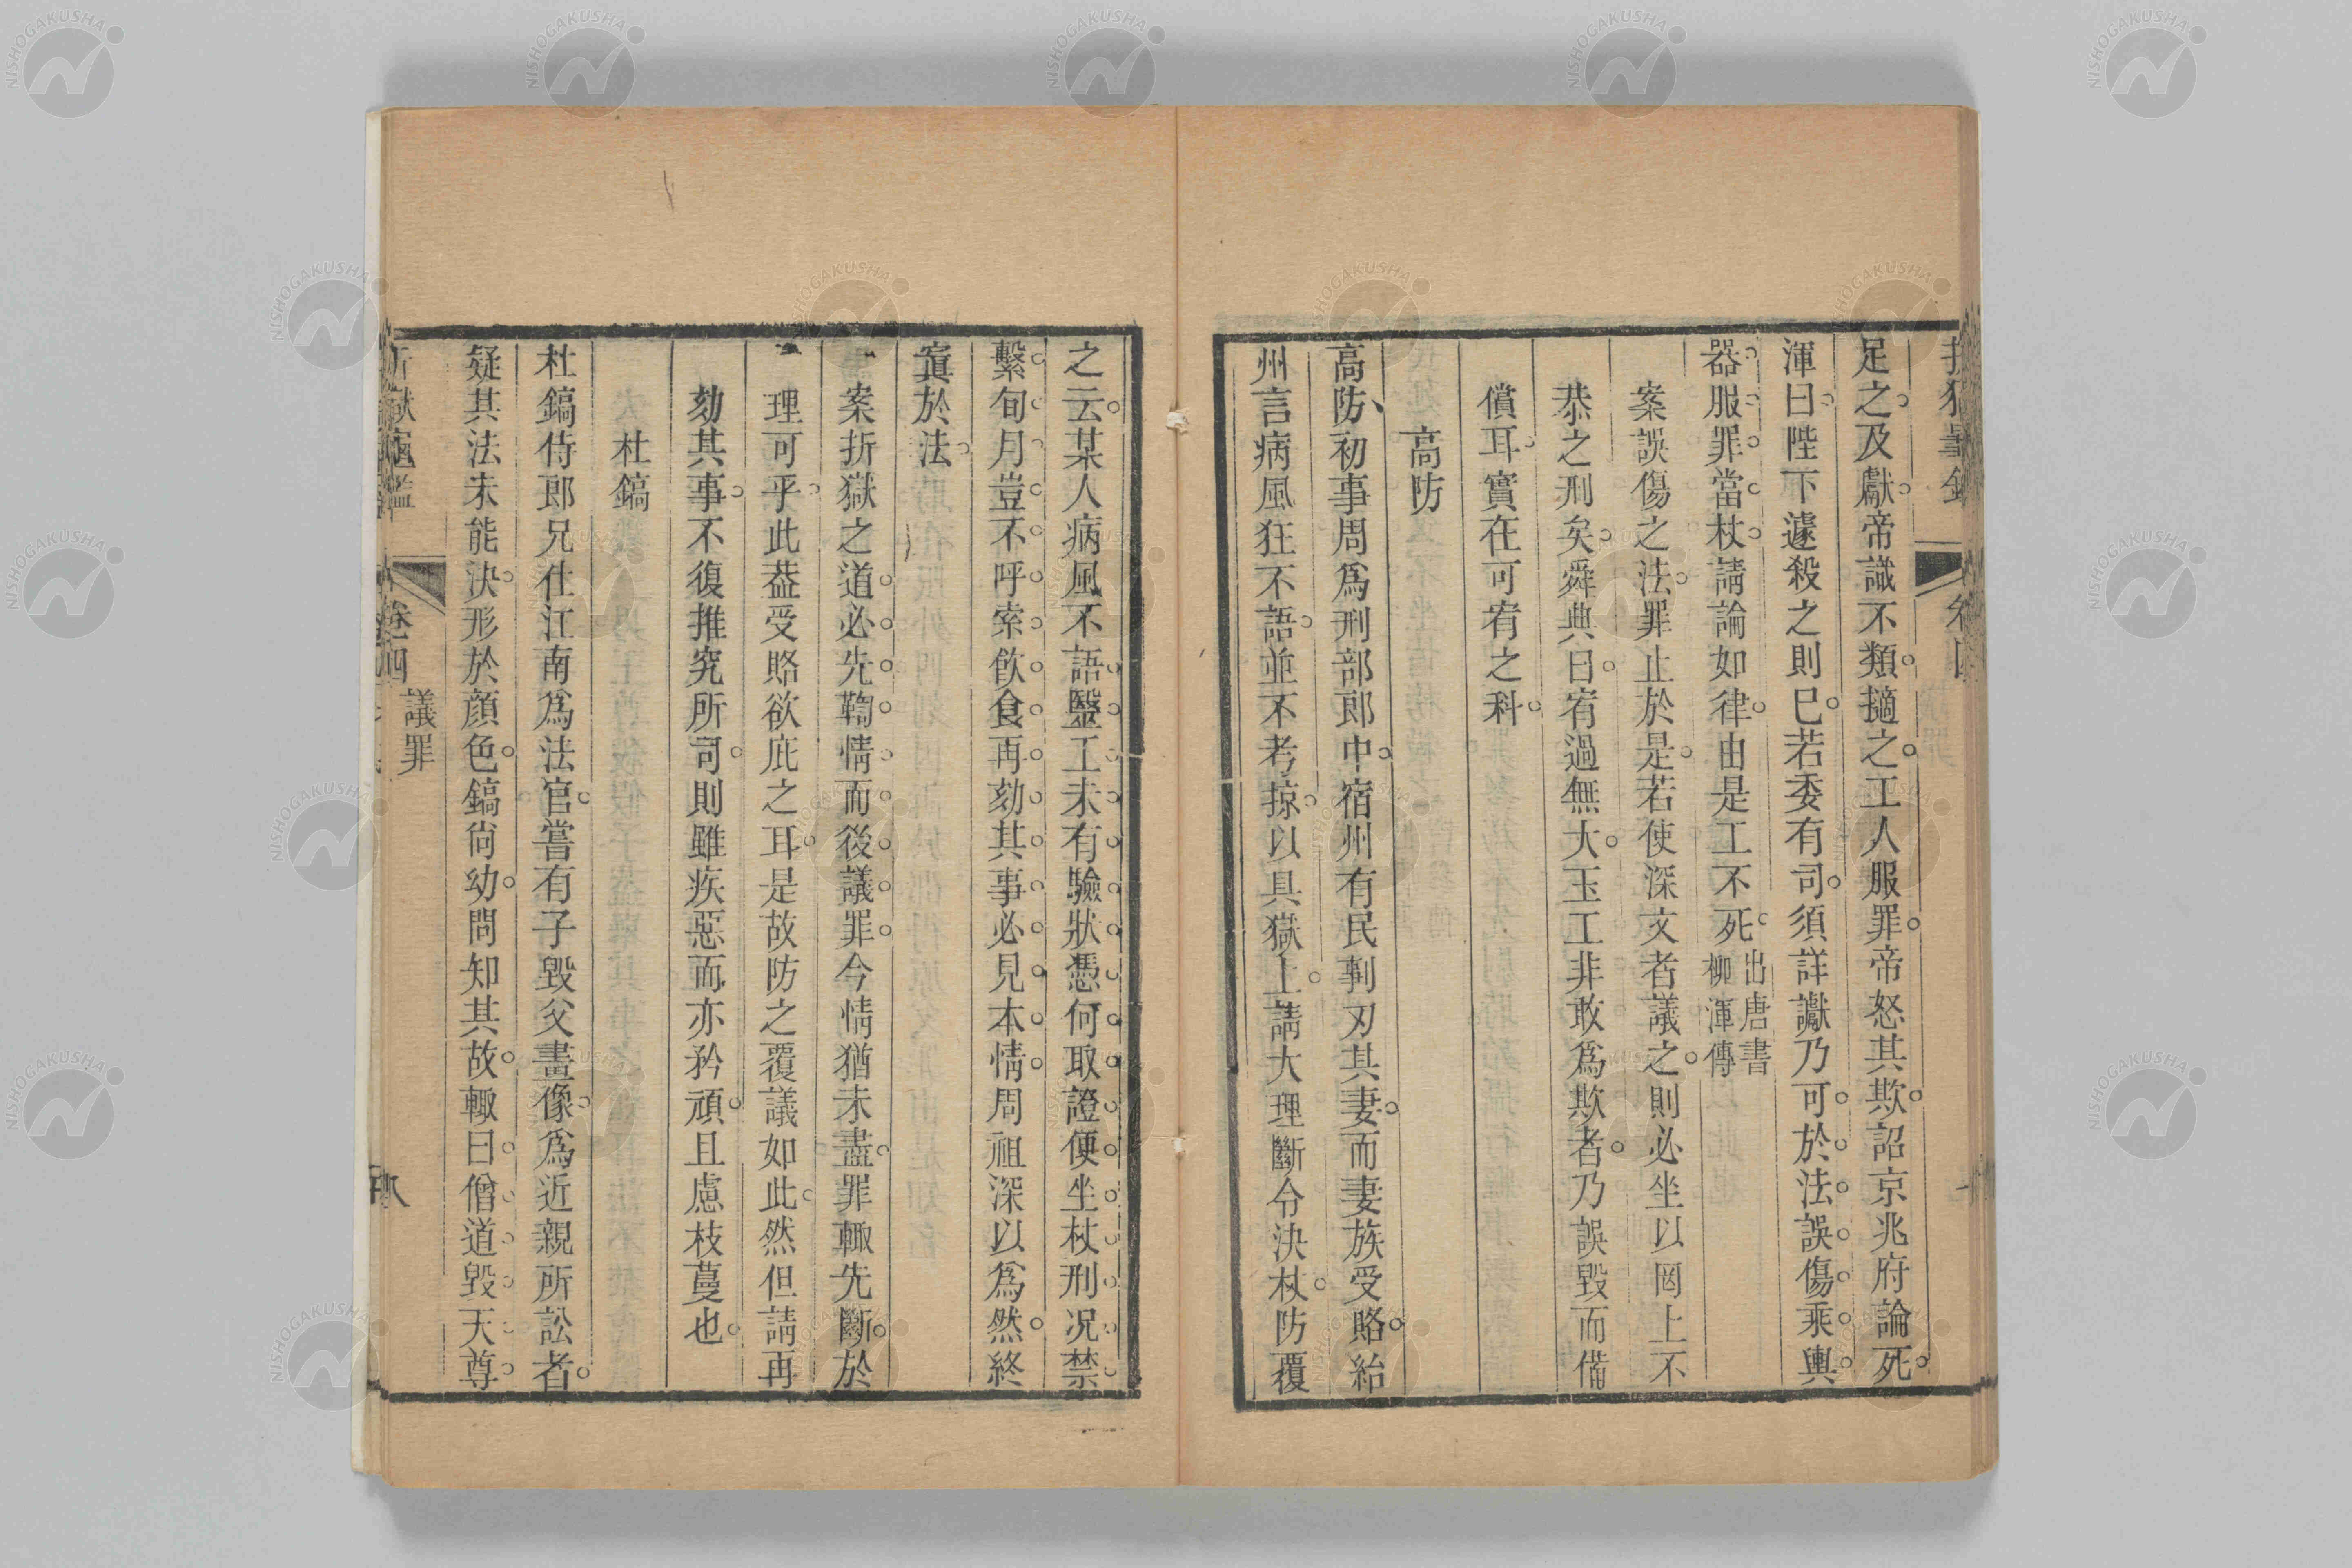 足之及獻帝識不類擿之工人服罪帝怒其欺詔京兆府論死
渾曰陛下遽殺之則巳若委有司須詳讞乃可於法誤傷乘輿
器服罪當杖請論如律由是工不死出唐書柳渾傳
案誤傷之法罪止於是若使深文者議之則必坐以罔上不
恭之刑矣舜典曰宥過無大玉工非敢爲欺者乃誤毀而備
償耳實在可宥之科
高防
高防初事周爲刑部郎中宿州有民剚刃其妻而妻族受賂紿
州言病風狂不語並不考掠以具獄上請大理斷令決杖防覆
之云某人病風不語醫工未有驗狀憑何取證便坐杖刑况禁
繫旬月豈不呼索飲食再劾其事必見本情周祖深以爲然終
寘於法
案折獄之道必先鞫情而後議罪今情猶未盡罪輙先斷於
理可乎此葢受賂欲庇之耳是故防之覆議如此然但請再
劾其事不復推究所司則雖疾惡而亦矜頑且慮枝蔓也
杜鎬
杜鎬侍郎兄仕江南爲法官嘗有子毀父畫像爲近親所訟者
疑其法未能決形於顔色鎬尙幼問知其故輙曰僧道毀天尊
折獄龜鑑 卷四 議罪
NISHOGAKUSHA